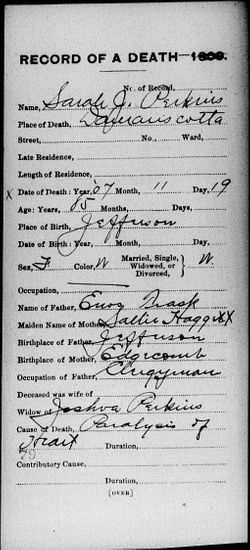 RECORD OF A DEATH—1909.
No. of Record,
Name, Sarah J. Perkins
Place of Death, Damariscotta
Street, No., Ward,
Late Residence,
Length of Residence,
x Date of Death: Year, 07 Month, 11 Day, 19
Age: Years, 85 Months, Days,
Place of Birth, Jefferson
Date of Birth: Year, Month, Day,
Sex, F Color, W Married, Single, Widowed, or Divorced, } W.
Occupation,
Name of Father, Enog Trask
Maiden Name of Mother, Sallie
Birthplace of Father, Jefferson
Birthplace of Mother, Edgecomb
Occupation of Father, Clergyman
Deceased was wife of
Widow of Joshua Perkins
Cause of Death, Paralysis of
Heart Duration,
79
Contributory Cause,
Duration,
[OVER]